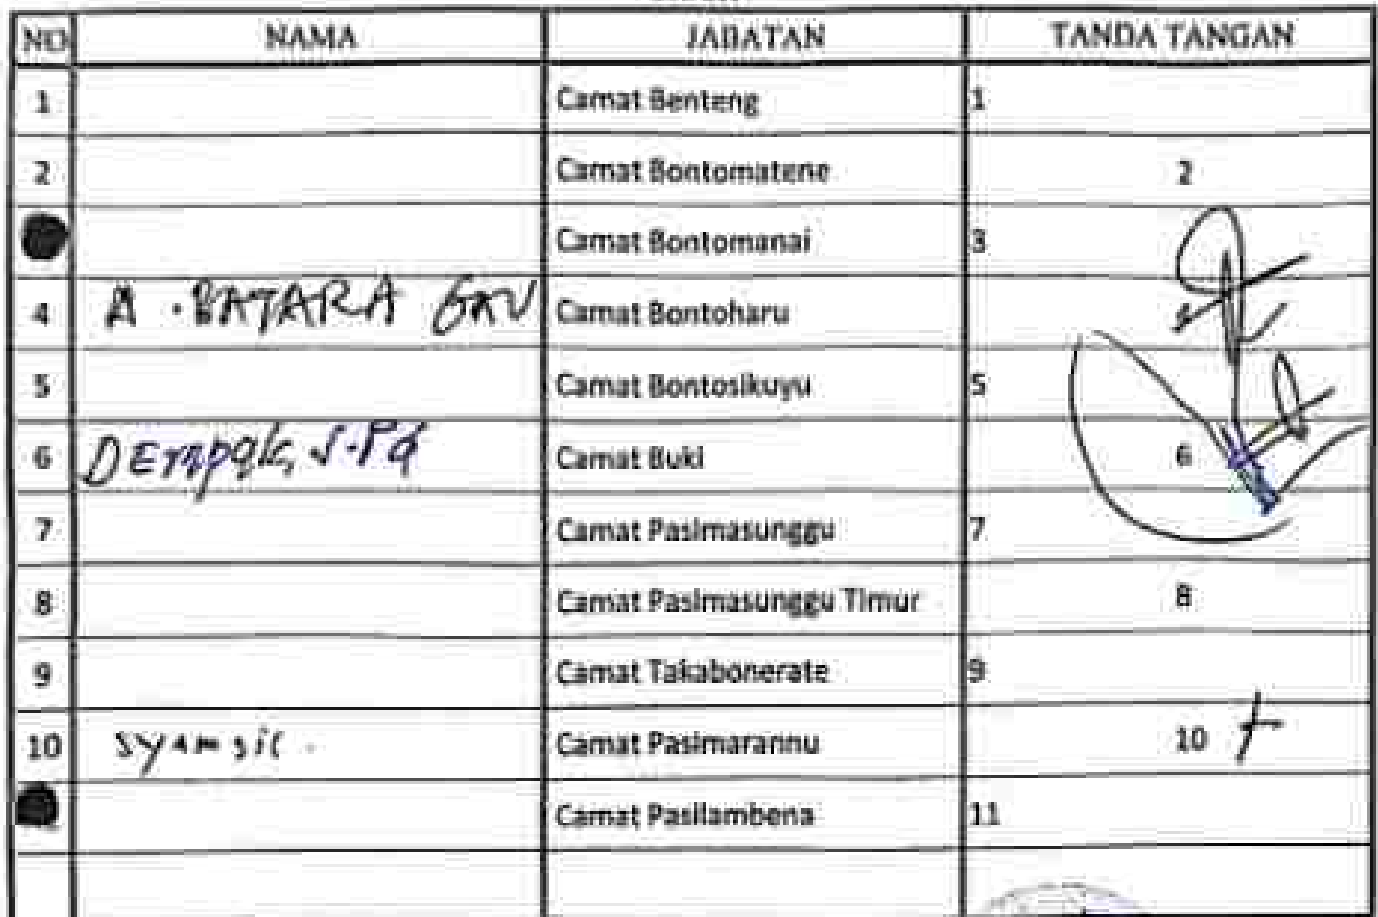 NO NAMA JABATAN TANDA TANGAN
1 Camat Benteng 1
2 Camat Bontomatene 2
Camat Bontomanai 3
4 A. BATARA GAU Camat Bontoharu
5 Camat Bontosikuyu 5
6 Camat Buki 6
7 Camat Pasimasunggu 7
8 Camat Pasimasunggu Timur 8
9 Camat Takabonerate 9
10 Camat Pasimarannu 10
Camat Pasilambena 11